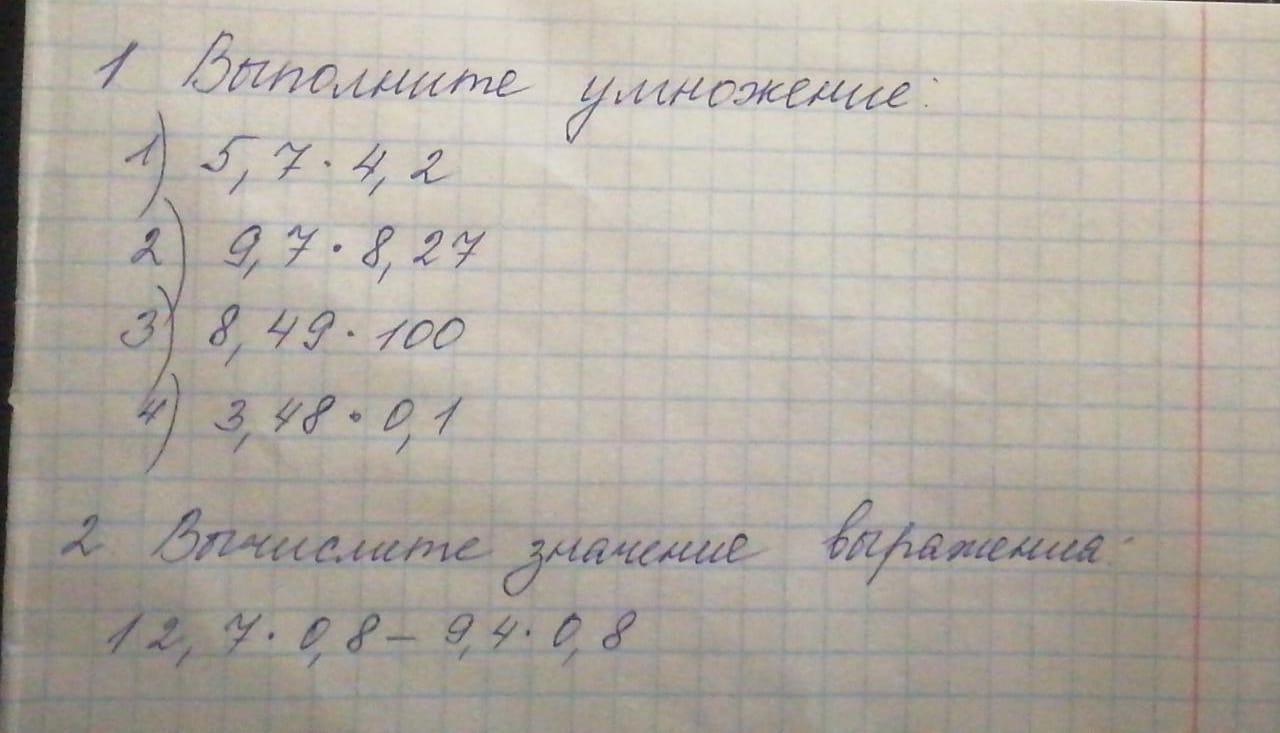 1 Выполните умножение:
1) 5,7 · 4,2
2) 9,7 · 8,27
3) 8,49 · 100
4) 3,48 · 0,1
2 Вычислите значение выражения:
12,7 · 0,8 – 9,4 · 0,8